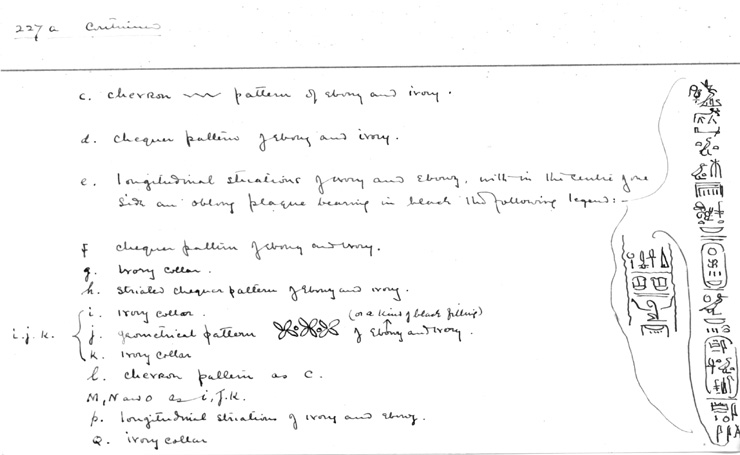 227a Continued
c. chevron pattern of ebony and ivory.
d. chequer pattern of ebony and ivory.
e. longitudinal striations of ivory and ebony, with in the centre of one
side an oblong plaque bearing in black the following legend:-
f chequer pattern of ebony and ivory.
g. Ivory collar.
h. striated chequer pattern of ebony and ivory.
i. Ivory collar.
(or a kind of black filling)
i.j.k. j. geometrical pattern of Ebony and Ivory.
k. Ivory collar
l. chevron pattern as C.
M, N and O as i, J. K.
p. longitudinal striations of ivory and ebony.
Q. ivory collar